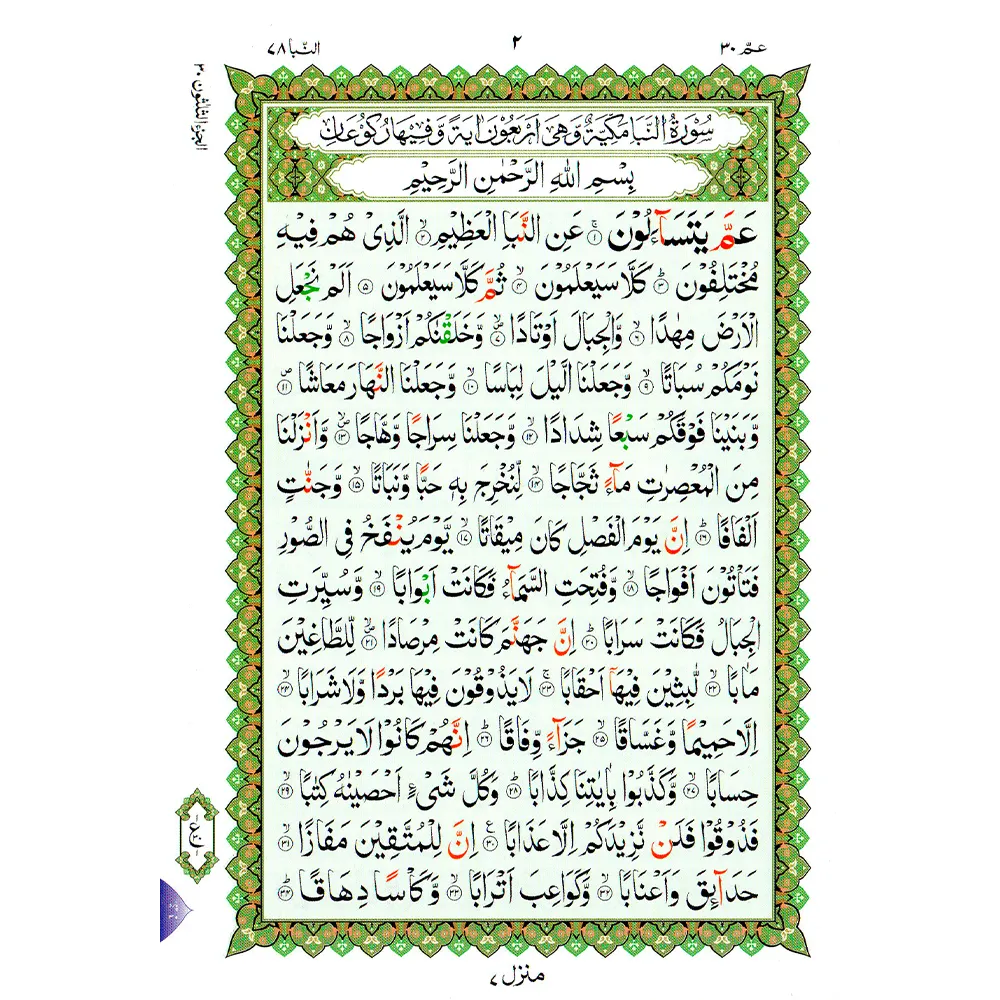 عـمّ ٣٠
٢
النّبا ٧٨
الجزء الثلثون ٣٠
سُوْرَةُ النَّبَاِ مَكِّيَّةٌ وَّهِيَ اَرْبَعُوْنَ اٰيَةً وَّفِيْهَا رُكُوْعَانِ
بِسْمِ اللهِ الرَّحْمٰنِ الرَّحِيْمِ
عَمَّ يَتَسَآءَلُوْنَ ۚ﴿۱﴾ عَنِ النَّبَاِ الْعَظِيْمِ ۙ﴿۲﴾ الَّذِىْ هُمْ فِيْهِ
مُخْتَلِفُوْنَ ؕ﴿۳﴾ كَلَّا سَيَعْلَمُوْنَ ۙ﴿۴﴾ ثُمَّ كَلَّا سَيَعْلَمُوْنَ ﴿۵﴾ اَلَمْ نَجْعَلِ
الْاَرْضَ مِهٰدًا ۙ﴿۶﴾ وَّالْجِبَالَ اَوْتَادًا ۪ۙ﴿۷﴾ وَّخَلَقْنٰكُمْ اَزْوَاجًا ۙ﴿۸﴾ وَّجَعَلْنَا
نَوْمَكُمْ سُبَاتًا ۙ﴿۹﴾ وَّجَعَلْنَا الَّيْلَ لِبَاسًا ۙ﴿۱۰﴾ وَّجَعَلْنَا النَّهَارَ مَعَاشًا ۪﴿۱۱﴾
وَّبَنَيْنَا فَوْقَكُمْ سَبْعًا شِدَادًا ۙ﴿۱۲﴾ وَّجَعَلْنَا سِرَاجًا وَّهَّاجًا ۪ۙ﴿۱۳﴾ وَّاَنْزَلْنَا
مِنَ الْمُعْصِرٰتِ مَآءً ثَجَّاجًا ۙ﴿۱۴﴾ لِّنُخْرِجَ بِهٖ حَبًّا وَّنَبَاتًا ۙ﴿۱۵﴾ وَّجَنّٰتٍ
اَلْفَافًا ؕ﴿۱۶﴾ اِنَّ يَوْمَ الْفَصْلِ كَانَ مِيْقَاتًا ۙ﴿۱۷﴾ يَّوْمَ يُنْفَخُ فِى الصُّوْرِ
فَتَاْتُوْنَ اَفْوَاجًا ۙ﴿۱۸﴾ وَّفُتِحَتِ السَّمَآءُ فَكَانَتْ اَبْوَابًا ۙ﴿۱۹﴾ وَّسُيِّرَتِ
الْجِبَالُ فَكَانَتْ سَرَابًا ؕ﴿۲۰﴾ اِنَّ جَهَنَّمَ كَانَتْ مِرْصَادًا ۪ۙ﴿۲۱﴾ لِّلطَّاغِيْنَ
مَاٰبًا ۙ﴿۲۲﴾ لّٰبِثِيْنَ فِيْهَاۤ اَحْقَابًا ۚ﴿۲۳﴾ لَا يَذُوْقُوْنَ فِيْهَا بَرْدًا وَّلَا شَرَابًا ۙ﴿۲۴﴾
اِلَّا حَمِيْمًا وَّغَسَّاقًا ۙ﴿۲۵﴾ جَزَآءً وِّفَاقًا ؕ﴿۲۶﴾ اِنَّهُمْ كَانُوْا لَا يَرْجُوْنَ
حِسَابًا ۙ﴿۲۷﴾ وَّكَذَّبُوْا بِاٰيٰتِنَا كِذَّابًا ؕ﴿۲۸﴾ وَكُلَّ شَىْءٍ اَحْصَيْنٰهُ كِتٰبًا ۙ﴿۲۹﴾
فَذُوْقُوْا فَلَنْ نَّزِيْدَكُمْ اِلَّا عَذَابًا ۠﴿۳۰﴾ اِنَّ لِلْمُتَّقِيْنَ مَفَازًا ۙ﴿۳۱﴾
حَدَآئِقَ وَاَعْنَابًا ۙ﴿۳۲﴾ وَّكَوَاعِبَ اَتْرَابًا ۙ﴿۳۳﴾ وَّكَاْسًا دِهَاقًا ؕ﴿۳۴﴾
منزل ٧